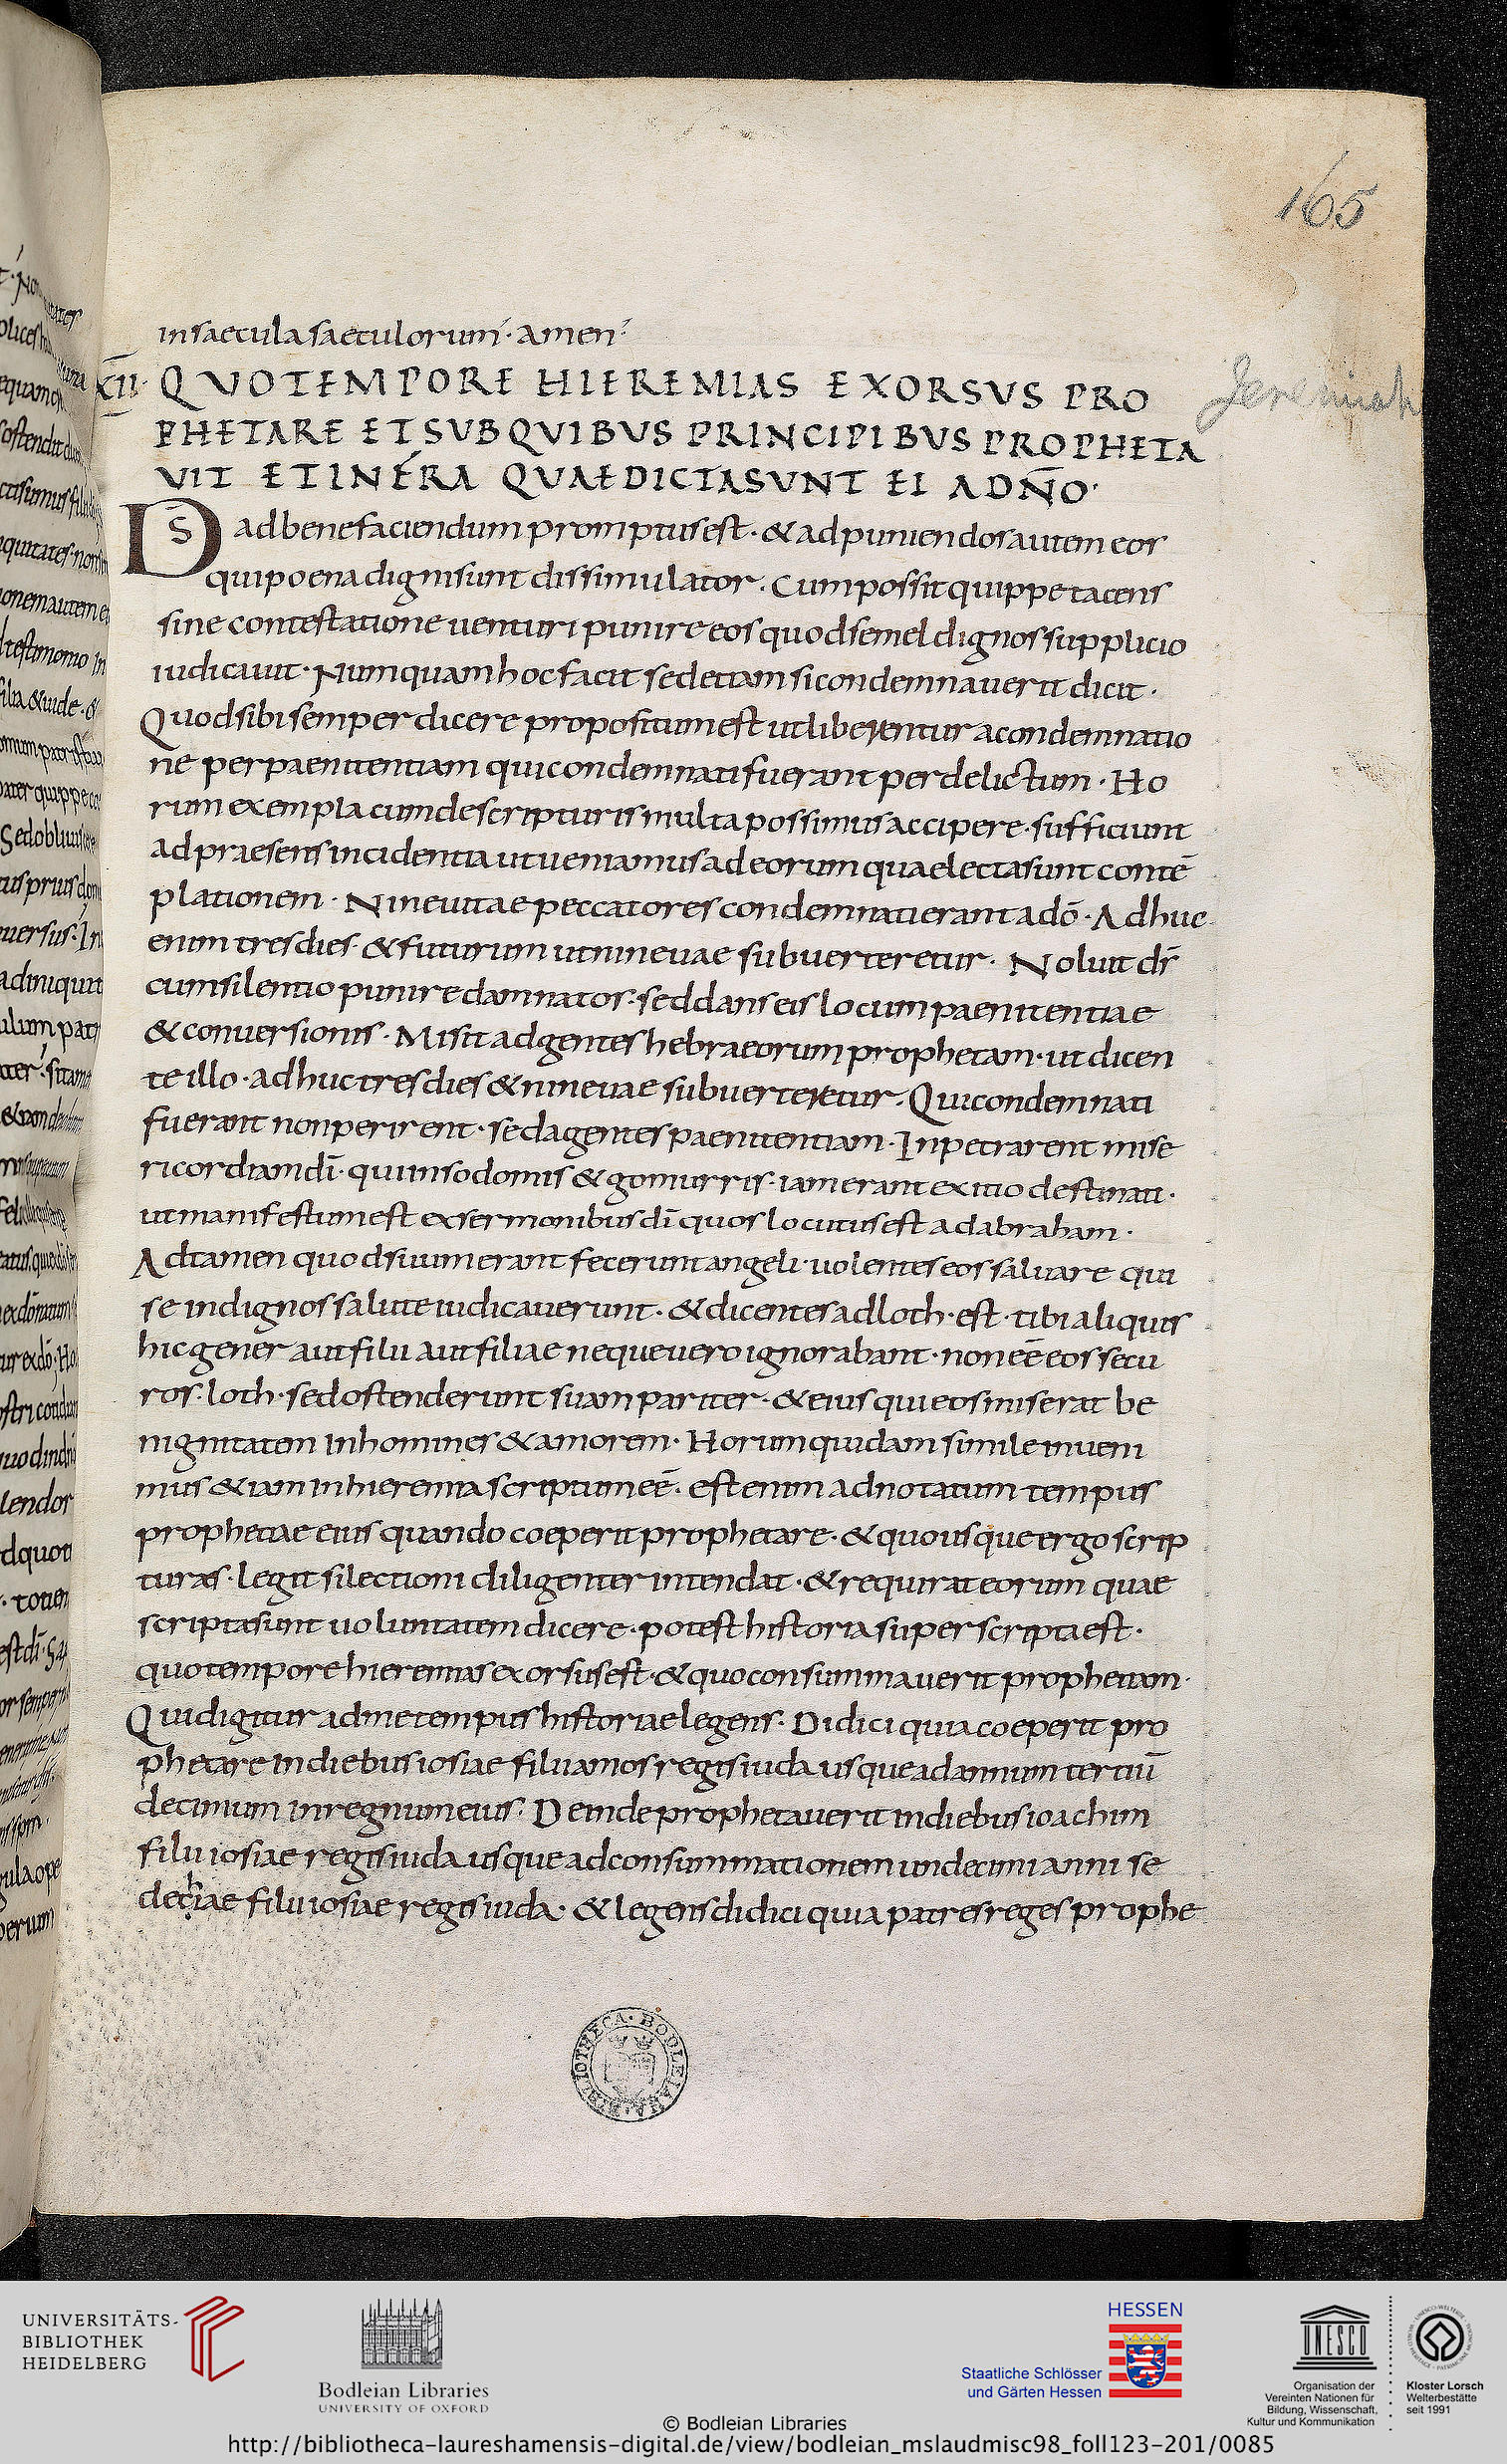 165
in saecula saeculorum · amen ·
XII · QUO TEMPORE HIEREMIAS EXORSVS PRO
Jeremiah
PHETARE ET SUB QVIBUS PRINCIPIBVS PROPHETA
VIT ET INFRA QUAE DICTA SVNT EI A DÑO ·
DS̄ ad benefaciendum promptus est · & ad puniendos autem eos
qui poena digni sunt dissimulator · Cum possit quippe tacens
sine contestatione uenturi punire eos quod semel dignos supplicio
iudicauit · Numquam hoc facit sed etiam si condemnauerit dicit ·
Quod sibi semper dicere propositum est ut liberentur a condemnatio
ne per paenitentiam qui condemnati fuerant per delictum · Ho
rum exempla cum de scripturis multa possimus accipere · sufficiunt
ad praesens incidentia ut ueniamus ad eorum quae lecta sunt contē
plationem · Nineuitae peccatores condemnati erant a dō · Adhuc
enim tres dies & futurum ut nineuae subuerteretur · Noluit ds̄
cum silentio punire damnatos · sed dans eis locum paenitentiae
& conuersionis · Misit ad gentes hebraeorum prophetam · ut dicen
te illo · adhuc tres dies & nineuae subuerteretur · Qui condemnati
fuerant non perirent · sed agentes paenitentiam · Inpetrarent mise
ricordiam dī · qui in sodomis & gomurris · iam erant exitio destinati ·
ut manifestum est ex sermonibus dī quos locutus est ad abraham ·
Adtamen quod suum erant fecerunt angeli · uolentes eos saluare qui
se indignos salute iudicauerunt · & dicentes ad loth · est · tibi aliquis
hic gener aut filii aut filiae neque uero ignorabant · non eē eos secu
ros · loth · sed ostenderunt suam pariter · & eius qui eos miserat be
nignitatem in homines & amorem · Horum quidam simile inueni
mus & iam in hieremia scriptum eē · est enim adnotatum tempus
prophetiae eius quando coeperit prophetare · & quousque ergo scrip
turas · legit si lectioni diligenter intendat · & requirat eorum quae
scripta sunt uoluntatem dicere · potest historia superscripta est ·
quo tempore hieremias exorsus est · & quo consummauerit prophetiam ·
Quid igitur ad me tempus historiae legens · Didici quia coeperit pro
phetare in diebus iosiae filii amos regis iuda usque ad annum tertiū
decimum in regnum eius · Deinde prophetauerit in diebus ioachim
filii iosiae regis iuda usque ad consummationem undecimi anni se
dechiae filii iosiae regis iuda · & legens didici quia patres reges prophe
BIBLIOTHECA · BODLEIANA
UNIVERSITÄTS-
BIBLIOTHEK
HEIDELBERG
Bodleian Libraries
UNIVERSITY OF OXFORD
© Bodleian Libraries
HESSEN
Staatliche Schlösser
und Gärten Hessen
UNESCO
Organisation der
Vereinten Nationen für
Bildung, Wissenschaft,
Kultur und Kommunikation
Kloster Lorsch
Welterbestätte
seit 1991
http://bibliotheca-laureshamensis-digital.de/view/bodleian_mslaudmisc98_foll123-201/0085